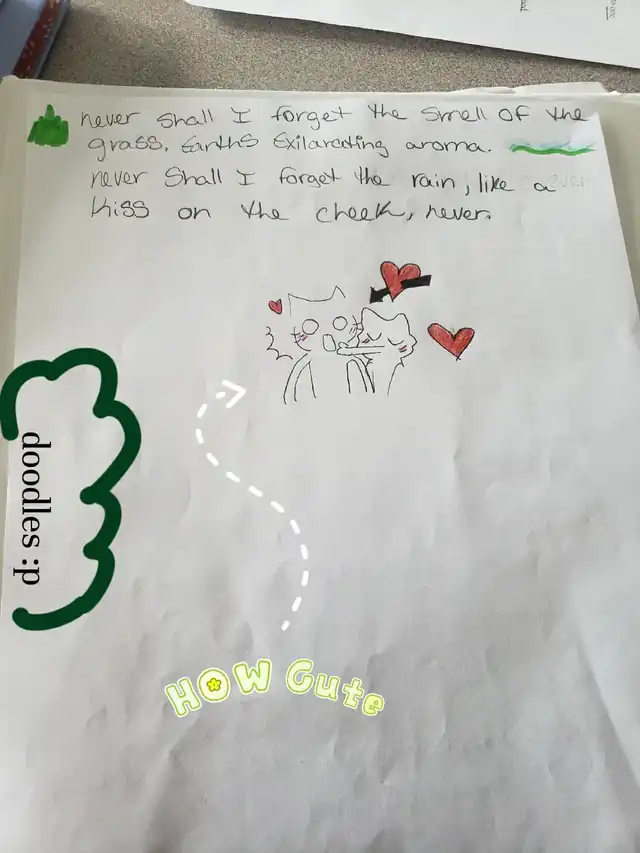 never shall I forget the smell of the
grass, Earths Exilarating aroma.
never shall I forget the rain, like a
kiss on the cheek, never.
doodles :p
HOW Cute